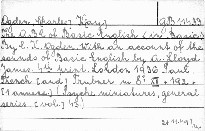 Ogden, Charles Kay
The ABC of Basic English (in Basic)
By C. K. Ogden. With an account of the
sounds of Basic English by A. Lloyd
James. 4th print. London 1936 Paul
Trench (and) Trubner m. 8°
(Psyche miniatures, general
series. [vol.] 43)